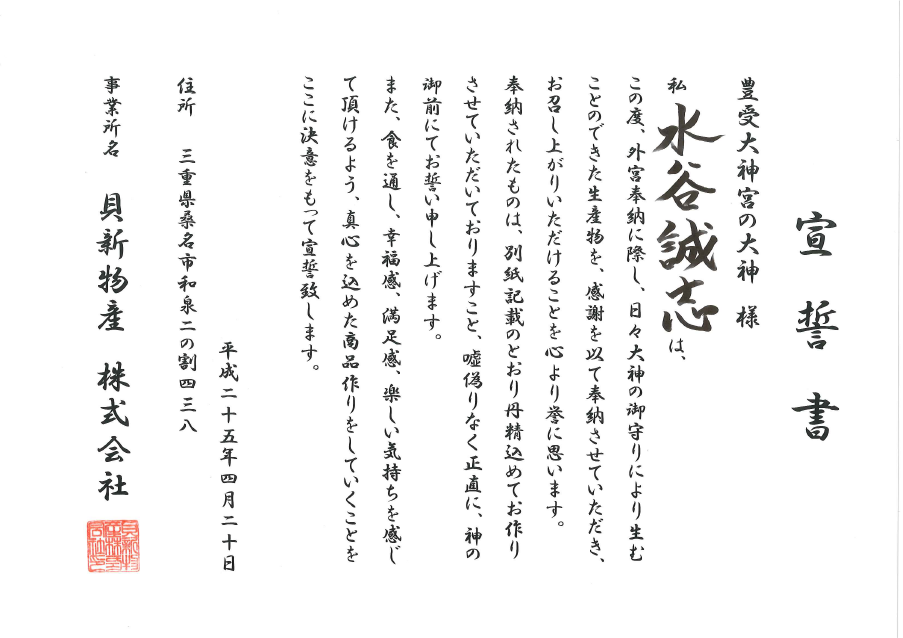 宣誓書
豊受大神宮の大神 様
私 水谷誠志は、
この度、外宮奉納に際し、日々大神の御守りにより生む
ことのできた生産物を、感謝を以て奉納させていただき、
お召し上がりいただけることを心より誉に思います。
奉納されたものは、別紙記載のとおり丹精込めてお作り
させていただいておりますこと、嘘偽りなく正直に、神の
御前にてお誓い申し上げます。
また、食を通し、幸福感、満足感、楽しい気持ちを感じ
て頂けるよう、真心を込めた商品作りをしていくことを
ここに決意をもって宣誓致します。
平成二十五年四月二十日
住所 三重県桑名市和泉二の割四三八
事業所名 貝新物産 株式会社